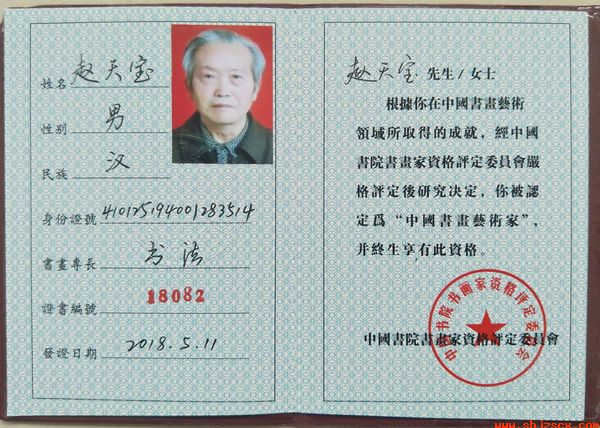 姓名 赵天宝
性别 男
民族 汉
身份證號 410125194001283514
書畫專長 书法
證書編號 18082
發證日期 2018.5.11
赵天宝 先生/女士
根據你在中國書畫藝術
領域所取得的成就，經中國
書院書畫家資格評定委員會嚴
格評定後研究决定，你被認
定爲“中國書畫藝術家”，
并終生享有此資格。
中国书院书画家资格评定委员会
中國書院書畫家資格評定委員會
www.shjzscx.com